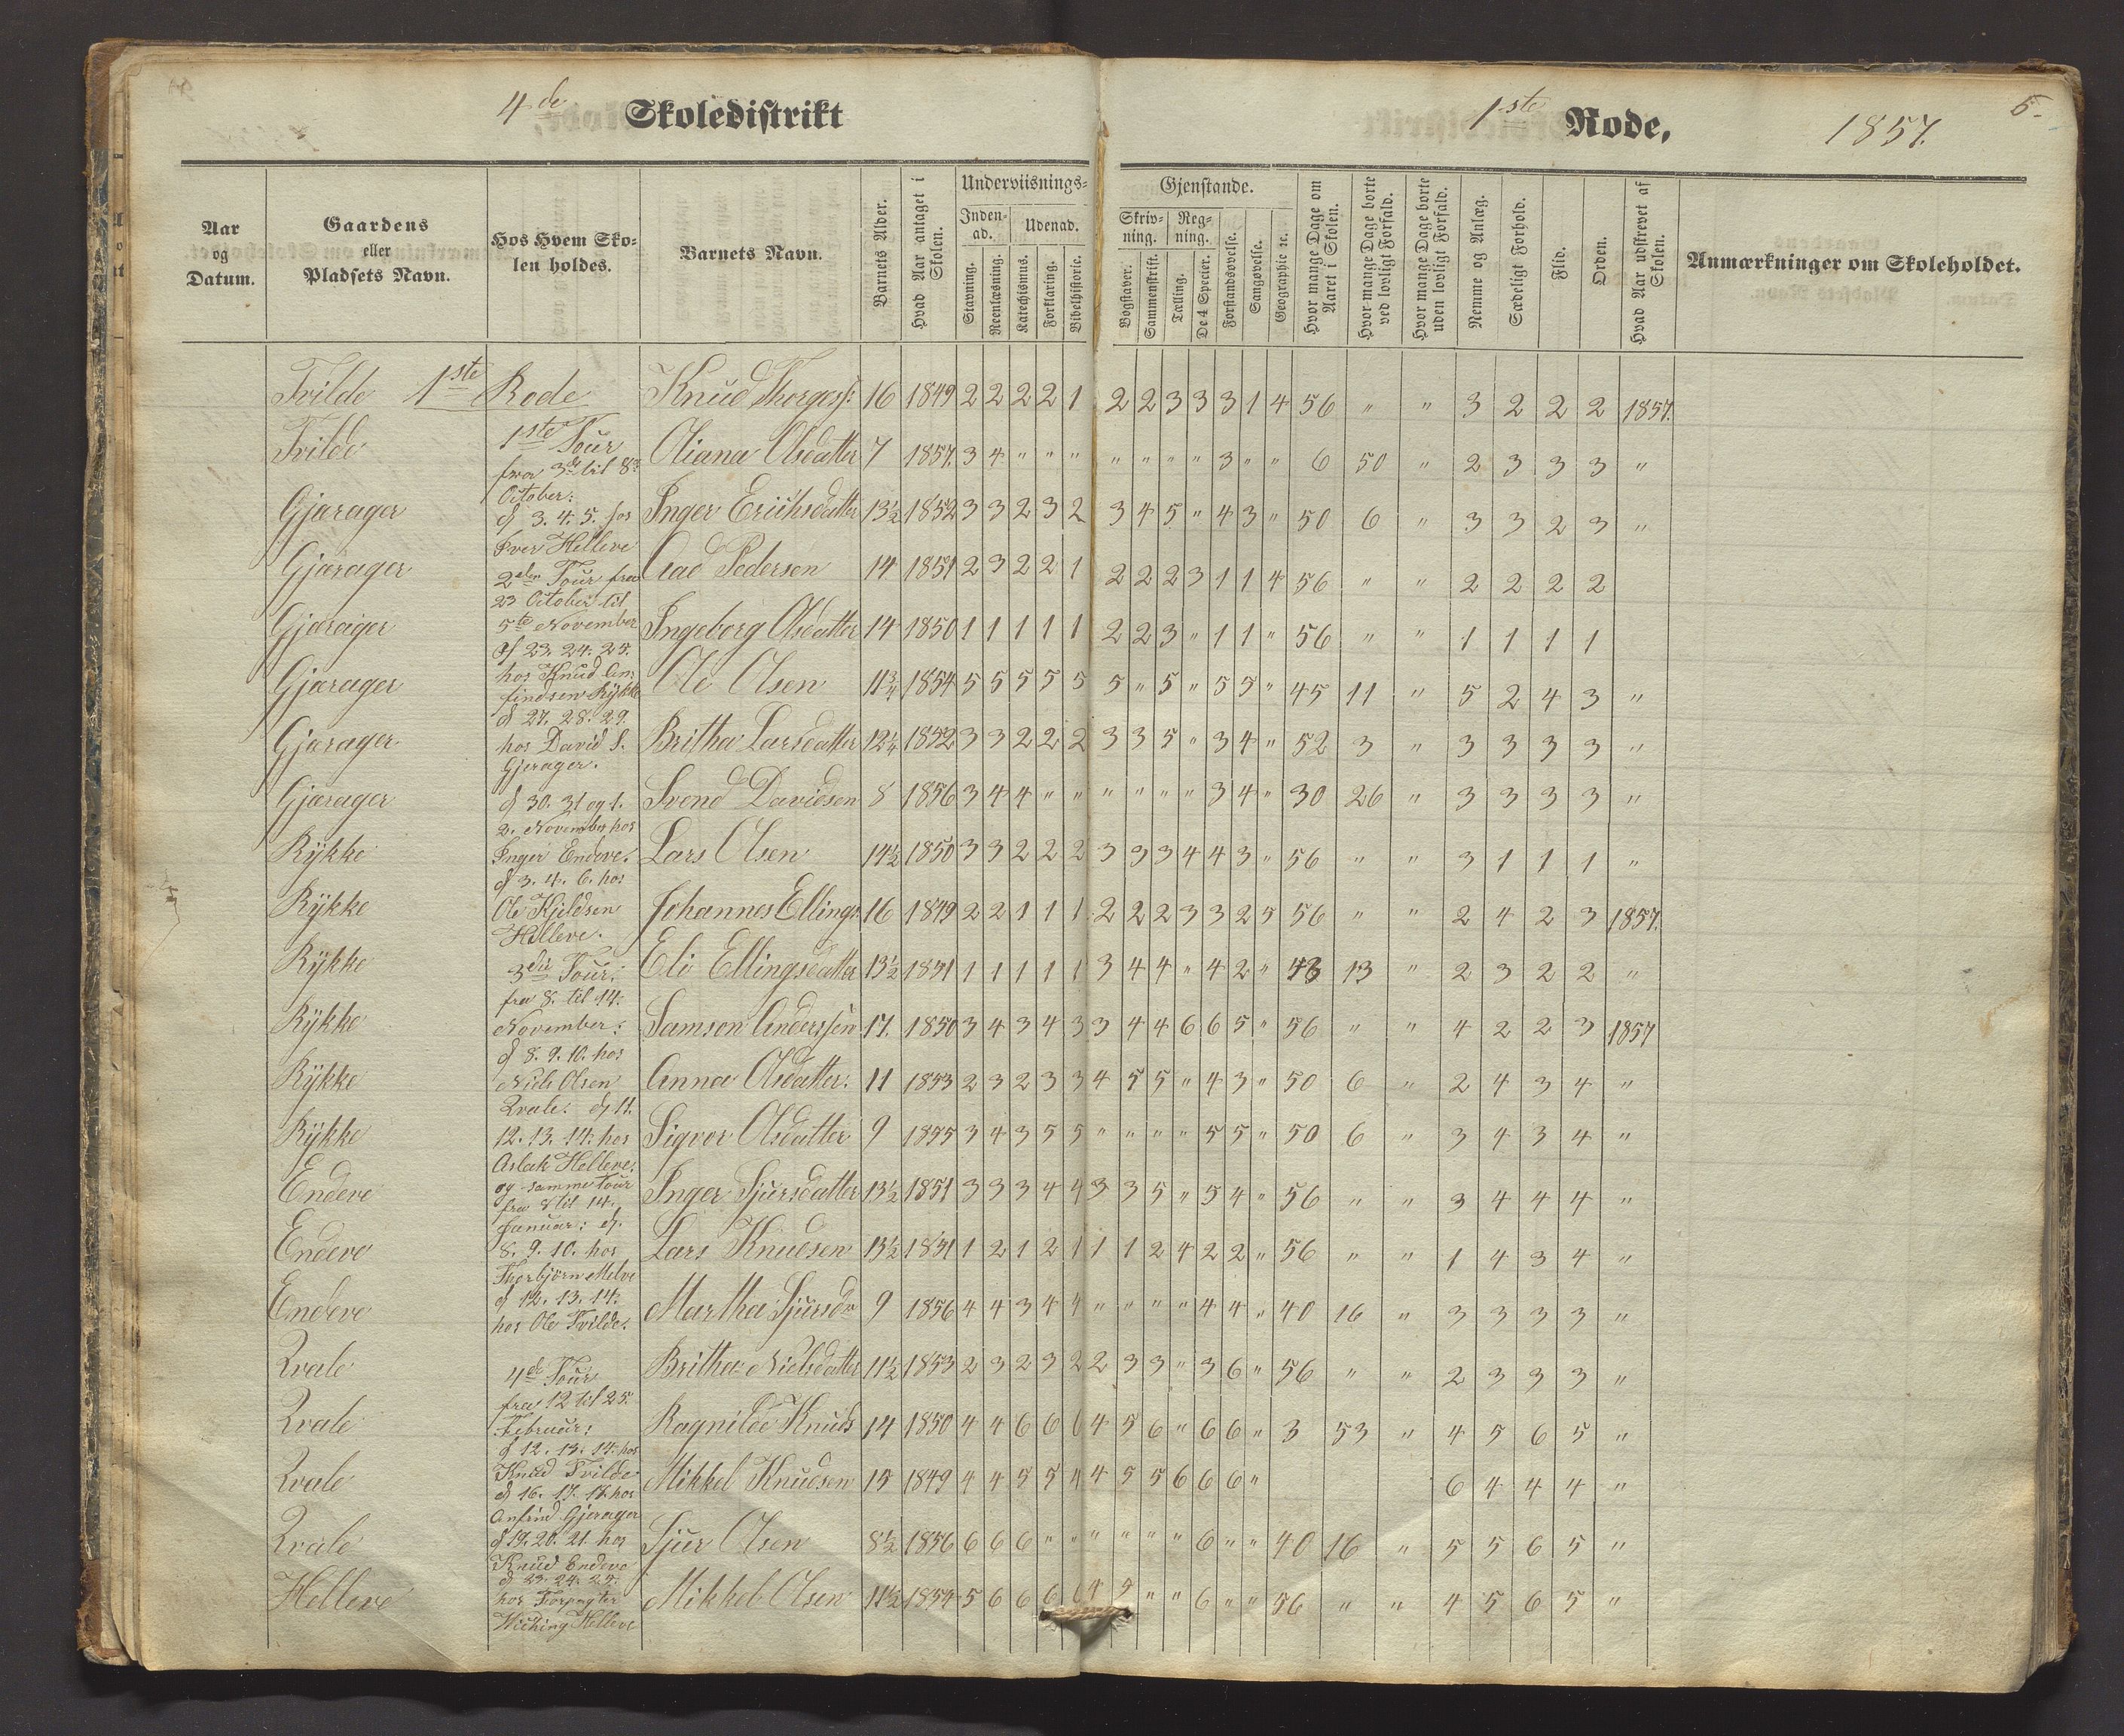 4de Skoledistrikt
1ste Rode, 1857. 5.
Aar og Datum.
Gaardens eller Pladsets Navn.
Hos Hvem Skolen holdes.
Barnets Navn.
Barnets Alder.
Hvad Aar antaget i Skolen.
Underviisnings-
Inden-ad.
Udenad.
Stavning.
Reenlæsning.
Katechismus.
Forklaring.
Bibelhistorie.
Gjenstande.
Skriv-ning.
Reg-ning.
Bogstaver.
Sammenskrift.
Tælling.
De 4 Specier.
Forstandsøvelse.
Sangøvelse.
Geographie ec.
Hvor mange Dage om Aaret i Skolen.
Hvor mange Dage borte ved lovligt Forfald.
Hvor mange Dage borte uden lovligt Forfald.
Nemme og Anlæg.
Sædeligt Forhold.
Flid.
Orden.
Hvad Aar udskrevet af Skolen.
Anmærkninger om Skoleholdet.
Tvilde 1ste Rode Knud Thorgess: 16 1849 2 2 2 2 1 2 2 3 3 3 1 4 56 " " 3 2 2 2 1857.
Tvilde Oliana Olsdatter 7 1857. 3 4 " " " " " " " 3 " " 6 50 " 2 3 3 3 "
Gjærager Inger Erichsdatter 13½ 1852 3 3 2 3 2 3 4 5 " 4 3 " 50 6 " 3 3 2 3 "
Gjærager Aad Pedersen 14 1851 2 3 2 2 1 2 2 2 3 1 1 4 56 " " 2 2 2 2
Gjærager Ingeborg Olsdatter 14 1850 1 1 1 1 1 2 2 3 " 1 1 " 56 " " 1 1 1 1
Gjærager Ole Olsen 11¾ 1854 5 5 5 5 5 5 " 5 " 5 5 " 45 11 " 5 2 4 3 "
Gjærager Britha Larsdatter 12¼ 1852 3 3 2 2 2 3 3 5 " 3 4 " 52 3 " 3 3 3 3 "
Gjærager Svend Davidsen 8 1856 3 4 4 " " " " " " 3 4 " 30 26 " 3 3 3 3 "
Rÿkke Lars Olsen 14½ 1850 3 3 2 2 2 3 3 3 4 4 3 " 56 " " 3 1 1 1 "
Rÿkke Johannes Ellings. 16 1849 2 2 1 1 1 2 2 2 3 3 2 5 56 " " 2 4 2 3 1857.
Rÿkke Eli Ellingsdatter 13½ 1851 1 1 1 1 1 3 4 4 " 4 2 " 43 13 " 2 3 2 2 "
Rÿkke Samson Anderssen 17. 1850 3 4 3 4 3 3 4 4 6 6 5 " 56 " " 4 2 2 3 1857
Rÿkke Anna Olsdatter. 11 1853 2 3 2 3 3 4 5 5 " 4 3 " 50 6 " 2 4 3 4 "
Rÿkke Sigvor Olsdatter 9 1855 3 4 3 5 5 " " " " 5 5 " 50 6 " 3 4 3 4 "
Endeve Inger Sjursdatter 13½ 1851 3 3 3 4 4 3 3 5 " 5 4 " 56 " " 3 4 4 4 "
Endeve Lars Knudsen 13½ 1851 1 2 1 2 1 1 1 2 4 2 2 " 56 " " 1 4 3 4 "
Endeve Martha Sjursdr 9 1856 4 4 3 4 4 " " " " 4 4 " 40 16 " 3 3 3 3 "
Qvale Britha Nielsdatter 11½ 1853 2 3 2 3 2 2 3 3 " 3 6 " 56 " " 2 3 3 3 "
Qvale Ragnilde Knuds 14 1850 4 4 6 6 6 4 5 6 " 6 6 " 3 53 " 4 5 6 5 "
Qvale Mikkel Knudsen 15 1849 4 4 5 5 4 4 5 5 6 6 6 " 6 4 4 4 "
Qvale Sjur Olsen 8½ 1856 6 6 6 " " " " " " 6 " " 40 16 " 5 5 6 5 "
Helleve Mikkel Olsen 11½ 1854 5 6 6 6 6 4 5 " " 6 " " 56 " " 4 5 6 5 "
1ste Tour
fra 3de til 8de
October:
d 3. 4. 5. hos
Iver Helleve
2den Tour fra
23 October til
5te November
d 23. 24. 25.
hos Knud
findsen Rÿkke
d 27. 28. 29.
hos David S.
Gjerager.
d 30. 31 og 1.
2. November hos
Inger Endeve.
d 3. 4. 6. hos
Ole Kjeldsen
Helleve.
3die Tour:
fra 8. til 14.
November:
d 8. 9. 10. hos
Niels Olsen
Qvale: d 11.
12. 13. 14: hos
Aslak Helleve:
og samme Tour
fra 8 til 14.
Januar: d.
8. 9. 10. hos
Thorbjörn Melve
d 12. 13. 14.
hos Ole Tvilde.
4de Tour
fra 12 til 25.
Februar:
d 12. 13. 14. hos
Knud Tvilde
d 16. 17. 18. hos
Anfind Gjerager
d 19. 20. 21. hos
Knud Endeve
d 23. 24. 25.
hos Forpagter
Wiching Helleve